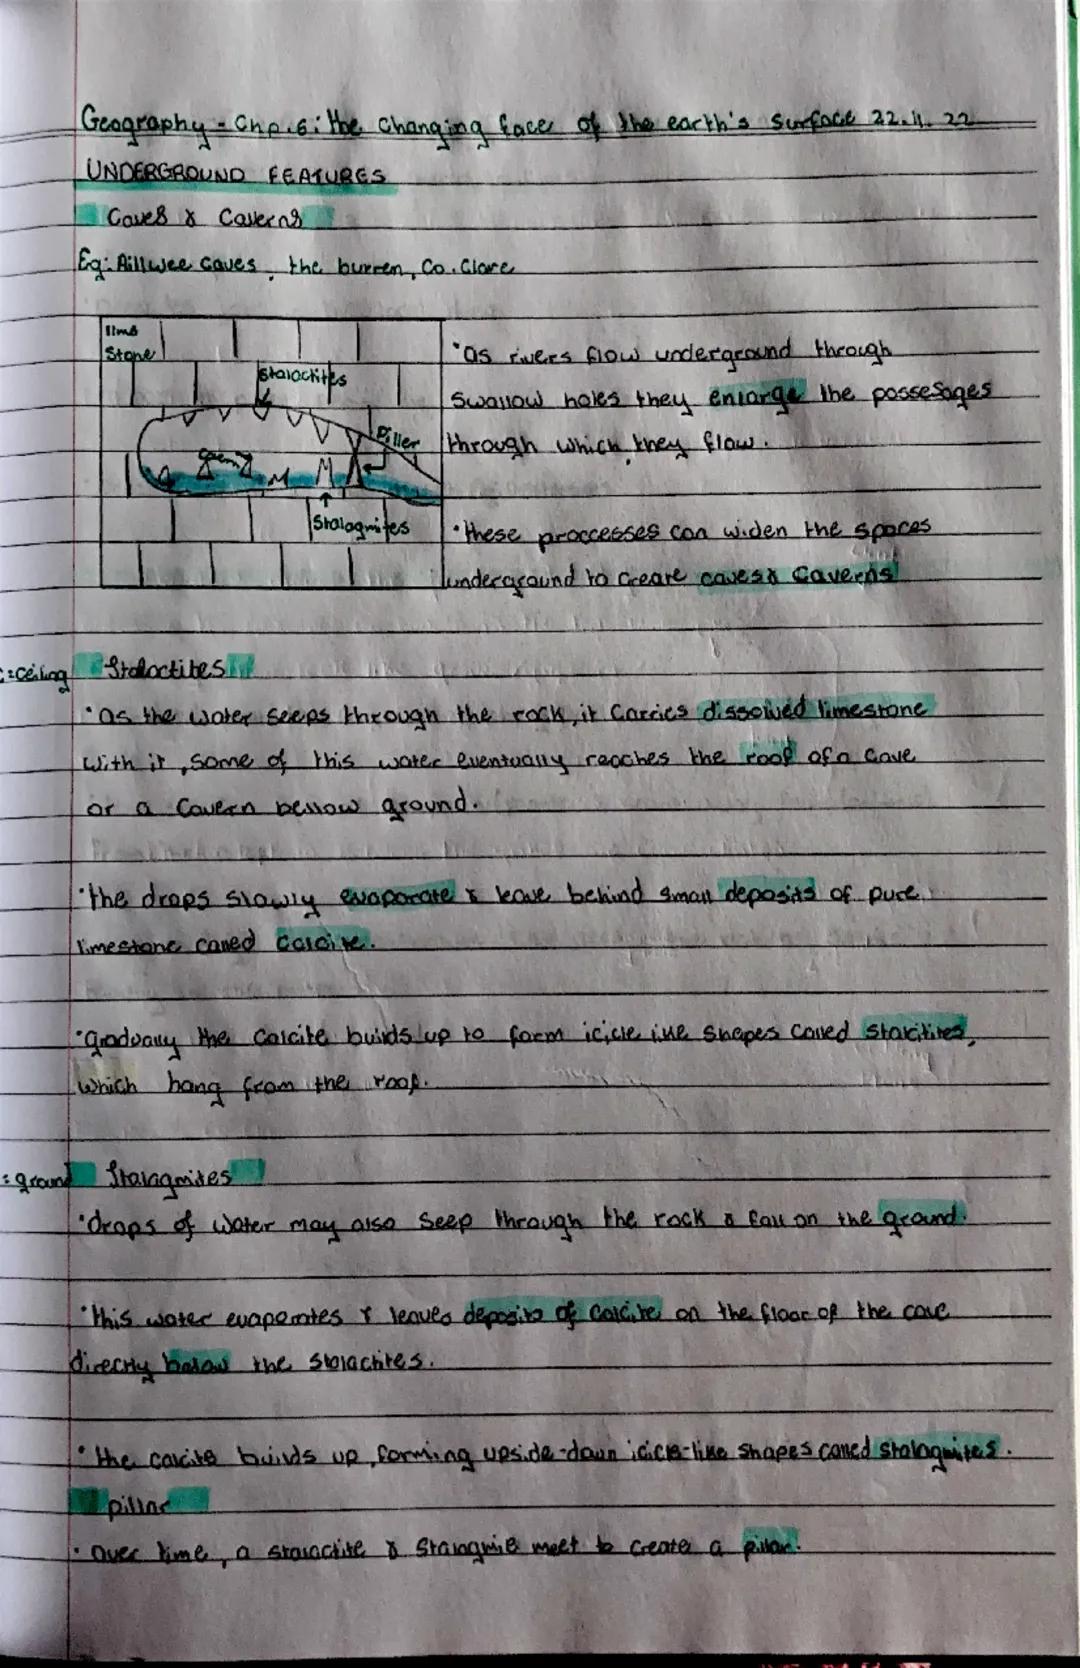 Geography - Chp.6: the changing face of the earth's surface 22.11.22
UNDERGROUND FEATURES
Caves & Caverns
Eg: Aillwee caves, the burren, Co. Clare
lime
Stone
Stalactites
Piller
Stalagmites
·as rivers flow underground through
swallow holes they enlarge the passesages
through which they flow.
·these proccesses can widen the spaces
underground to create caves & caverns
c=ceiling Stalactites
·as the water seeps through the rock, it carries dissolved limestone
with it, some of this water eventually reaches the roof of a cave
or a cavern bellow ground.
·the drops slowly evaporate & leave behind small deposits of pure
limestone called calcite.
·gradually the calcite builds up to form icicle like shapes called stalcitites,
which hang from the roof.
: ground Stalagmites
·drops of water may also seep through the rock & fall on the ground.
·this water evaporates & leaves deposits of calcite on the floor of the cave
directly below the stalactites.
·the calcite builds up, forming upside-down icicle-like shapes called stalagmites.
pillar
·over time, a stalactite & stalagmie meet to create a pillar.